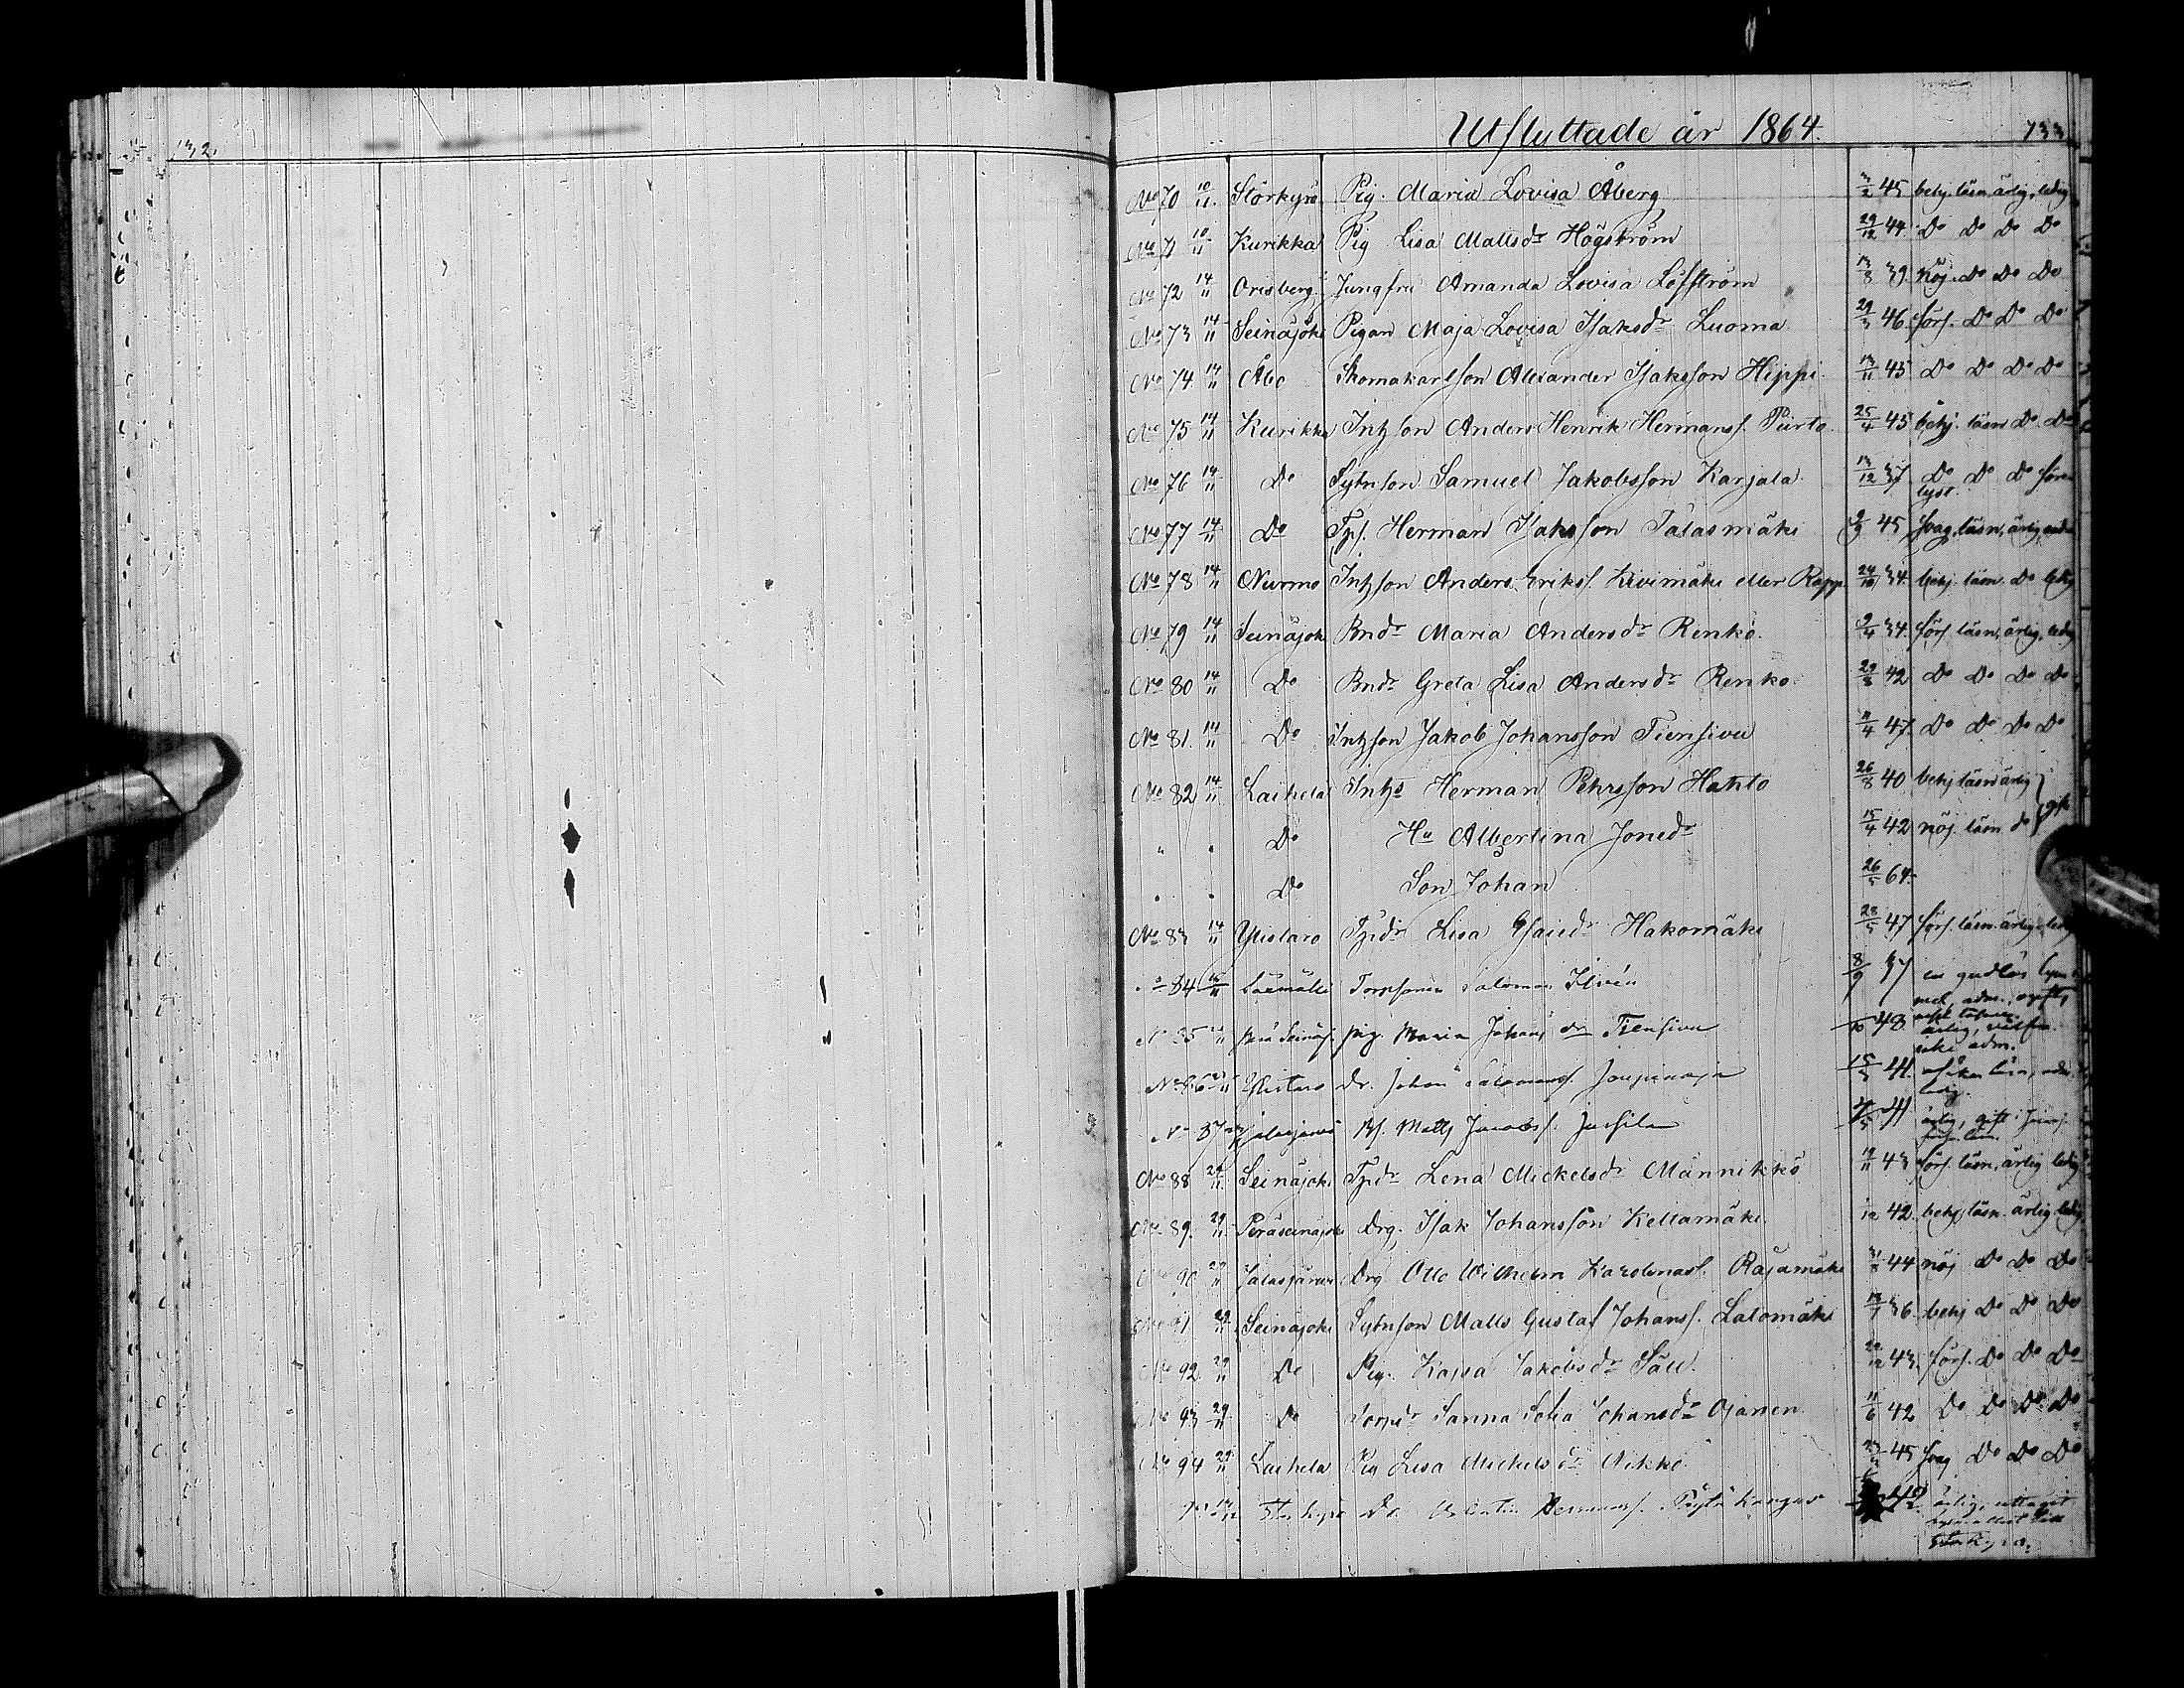 132.
Utflyttade år 1864.
133
No 70 10/11. Storkyro Pig. Maria Lovisa Åberg 3/2 45 behj. läsn. ärlig, ledig
No 71 10/11 Kurikka Pig Lisa Mattsdr Högström 29/12 44. Do Do Do Do
No 72 14/11 Orisberg Jungfru Amanda Lovisa Löfström 13/8 39. Nöj. Do Do Do
No 73 14/11 Seinäjoki Pigan Maja Lovisa Isaksdr Luoma 29/3 46. förs. Do Do Do
No 74. 14/11 Åbo Skomakarlson Alexander Isaksson Hippi 13/11 45 Do Do Do Do
No 75 14/11 Kurikka Inhson Anders Henrik Hermanss. Piirto 25/4 45 behj. läsn Do Do
No 76 14/11 Do Sytnson Samuel Jakobsson Karjala 13/12 37. Do Do Do
lyst.
No 77 14/11 Do Tps. Herman Isaksson Jalasmäki 9/9 45 svag. läsn. ärlig,
No 78 14/11 Nurmo Inhson Anders Erikss. Kivimäki eller Rapp 24/10 34. behj. läsn. Do ledig
No 79 14/11 Seinäjoki Bndr Maria Andersdr Renko. 9/4 34. förs. läsn, ärlig, ledig
No 80 14/11 Do Bndr Greta Lisa Andersdr Renko. 29/8 42 Do Do Do Do
No 81. 14/11 Do Inhson Jakob Johansson Tiensivu 11/4 47. Do Do Do Do
No 82 14/11 Laihela Inhs Herman Pehrsson Hahto 26/8 40 behj läsn ärlig
" " Do Hu Albertina Jonedr 15/4 42 nöj. läsn. do gift
" " Do Son Johan 26/5 64.
No 83 14/11 Ylistaro Tpdr Lisa Esaiedr Hakomäki 28/5 47 förs. läsn. ärlig. ledig
No 84 Salomon Ilvén 8/9 37 en gudlös
adm.,
No 85 Perä Seinäj. pig. Maria Johans dr Tiensivu 48 ärlig,
adm.
No 86 Ylistaro Dr. Johan Salomonss. 41. läsn,
ledig.
No 87 Jalasjärvi Bs. Matts Jacobs. Jussila 4/5 41 ärlig, gift
No 88 29/11 Seinäjoki Tpdr Lena Mickelsdr Männikkö 19/11 43 förs. läsn. ärlig ledig
No 89. 29/11 Peräseinäjoki Drg. Isak Johansson Keltamäki 12 42. behj läsn. ärlig ledig
No 90 29/11 Jalasjärvi Drg Otto Wilhelm Karolinass. Rajamäki 31/8 44 nöj Do Do Do
No 91 29/11 Seinäjoki Sytnson Matts Gustaf Johanss. Latomäki 13/7 36. behj Do Do Do
No 92 29/11 Do Pig. Kajsa Jakobsdr Säll. 12 43. förs. Do Do Do
No 93 29/11 Do Torpdr Sanna Sofia Johansdr Ojanen 11/6 42 Do Do Do Do
No 94 29/11 Laihela Pig Lisa Mickels dr Nikko 45 svag Do Do Do
Storkyro Dr. Valentin Hermanss. 42 ärlig, uttagit
Storkyro.